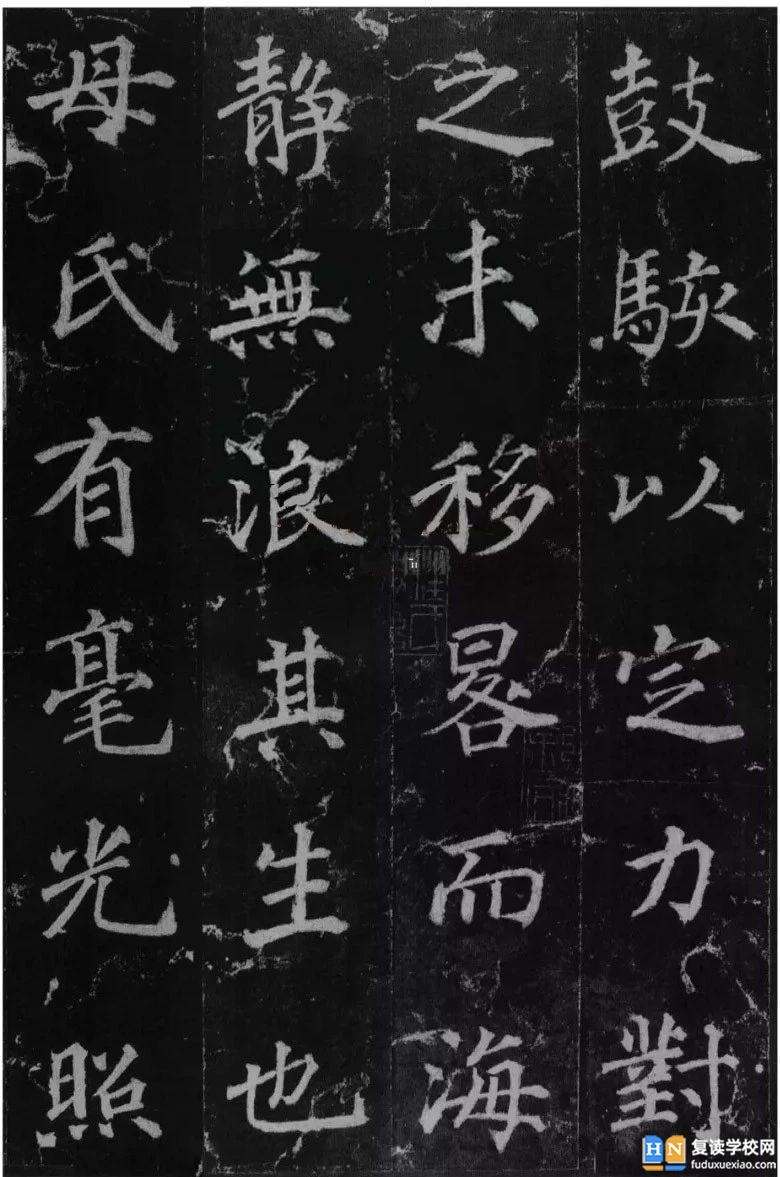 鼓駭以定力對
之未移晷而海
静無浪其生也
母氏有毫光照
HN 复读学校网
fuduxuexiao.com